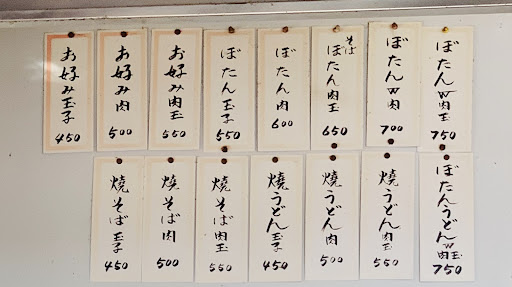 お好み玉子
450
お好み肉
500
お好み肉玉
550
ぼたん玉子
550
ぼたん肉
600
そば
ぼたん肉玉
650
ぼたんW肉
700
ぼたんW肉玉
750
焼そば玉子
450
焼そば肉
500
焼そば肉玉
550
焼うどん玉子
450
焼うどん肉
500
焼うどん肉玉
550
ぼたんうどんW肉玉
750